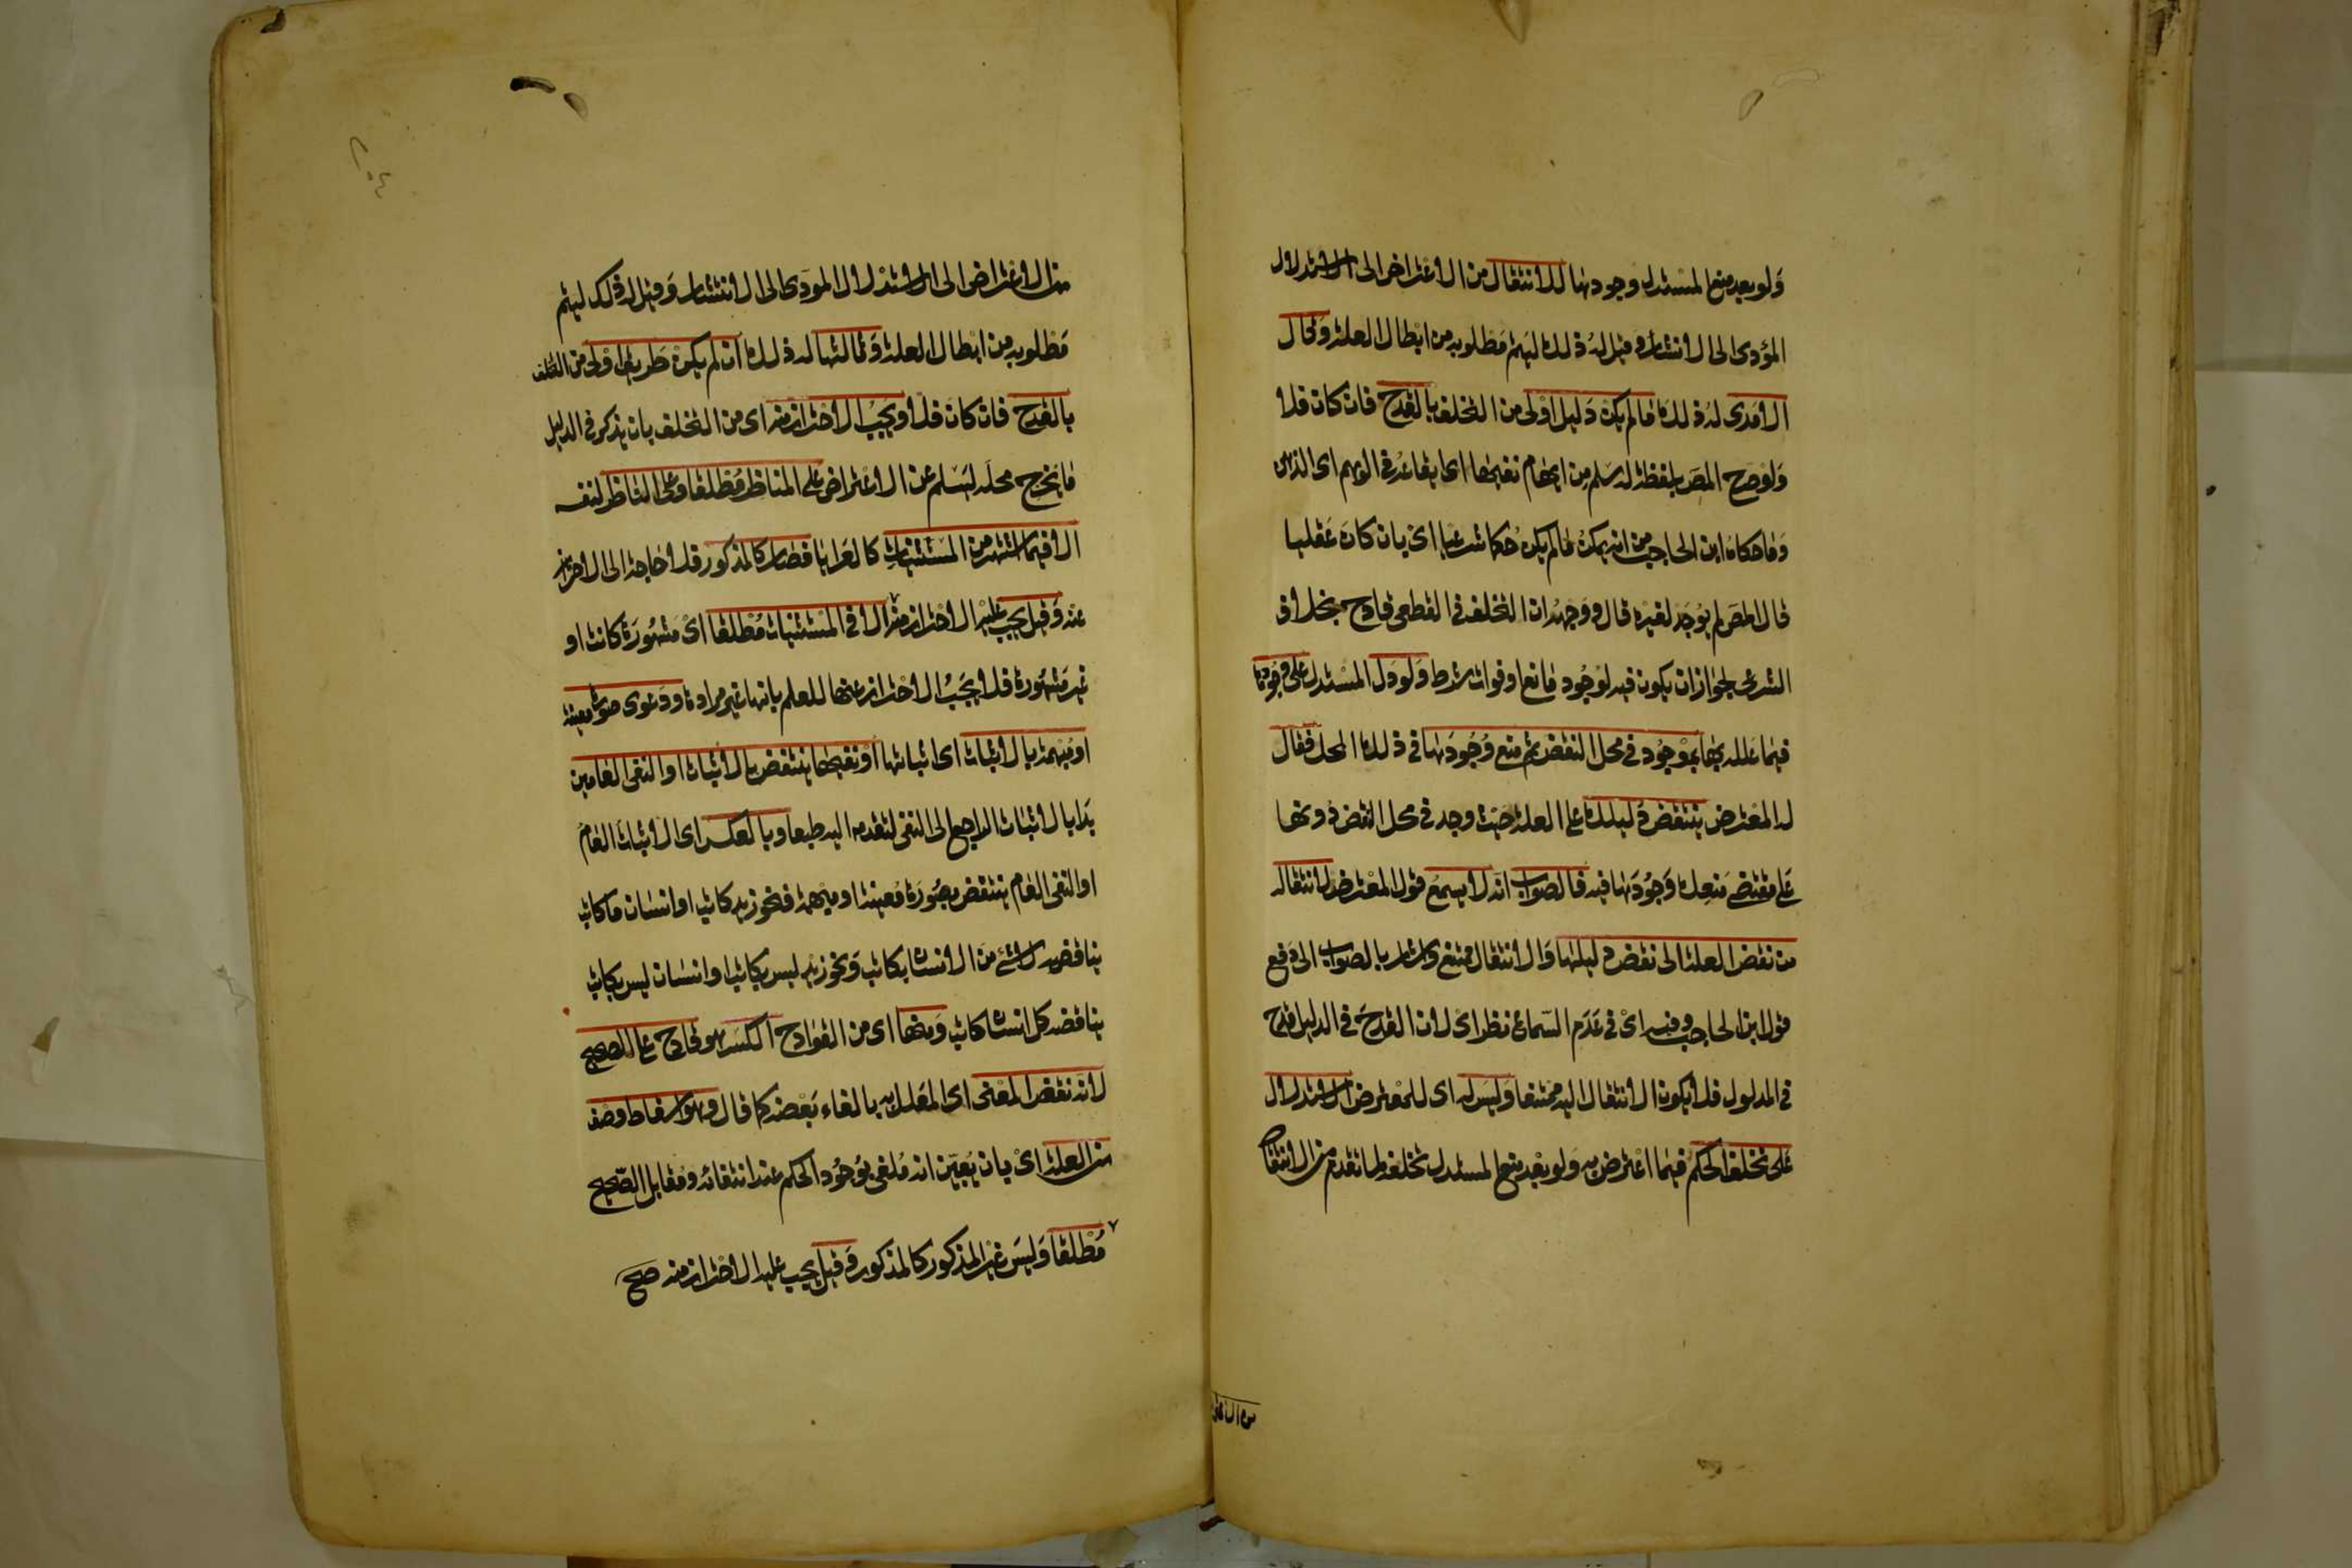 ولو بعد منع المستدل وجودها للانتقال من الاعتراض الى الاستدلال
المؤدى الى الانتشار وقيل له ذلك ليتم مطلوبه من ابطال العلة وقال
الآمدى له ذلك ما لم يكن دليل اولى من التخلف بالقدح فان كان فلا
ولو صرح المص بلفظة له سلم من ايهام نفيها اى ايقاعه فى الوهم اى الذهن
وما حكاه ابن الحاجب من انه يمكن ما لم يكن حكما شرعيا اى بان كان عقليا
قال المص لم يوجد لغيره قال ووجهه ان التخلف فى القطعى قادح بخلاف
الشرعى لجواز ان يكون فيه لوجود مانع او فوات شرط ولو دل المستدل على وجودها
فيما علله بها بموجود فى محل النقض ثم منع وجودها فى ذلك المحل فقال
له المعترض ينتقض دليلك على العلة حيث وجد فى محل النقض دونها
على مقتضى منعك وجودها فيه فالصواب انه لا يسمع قول المعترض لانتقاله
من نقض العلة الى نقض دليلها والانتقال ممتنع واشار بالصواب الى دفع
قول ابن الحاجب وفيه اى فى عدم السماع نظر اى لان القدح فى الدليل قدح
فى المدلول فلا يكون الانتقال اليه ممتنعا وليس له اى للمعترض الاستدلال
على تخلف الحكم فيما اعترض به ولو بعد منع المستدل تخلفه لما تقدم من الانتقال
من الاعتراض
من الاعتراض الى الاستدلال المؤدى الى الانتشار وقيل له ذلك ليتم
مطلوبه من ابطال العلة وثالثها له ذلك ان لم يكن طريق اولى من التخلف
بالقدح فان كان فلا ويجب الاحتراز منه اى من التخلف بان يذكر فى الدليل
ما يخرج محله ليسلم عن الاعتراض على المناظر مطلقا وعلى الناظر لنفسه
الا فيما اشتهر من المستثنيات كالعرايا فصار كالمذكور فلا حاجة الى الاحتراز
عنه وقيل يجب عليه الاحتراز منه الا فى المستثنيات مطلقا اى مشهورة كانت او
غير مشهورة فلا يجب الاحتراز عنها للعلم بانها غير مرادة ودعوى صورة معينة
او مبهمة بالاثبات اى اثباتها او نفيها ينتقض بالاثبات او النفى العامين
بدا بالاثبات الراجع الى النفى لتقدمه اليه طبعا وبالعكس اى الاثبات العام
او النفى العام ينتقض بصورة معينة او مبهمة فنحو زيد كاتب او انسان ما كاتب
يناقضه لا شئ من الانسان بكاتب ونحو زيد ليس بكاتب او انسان ليس بكاتب
يناقضه كل انسان كاتب ومنها اى من القوادح الكسر هو قادح على الصحيح
لانه نقض المعنى اى المعلل به بالغاء بعضه كما قال وهو اسقاط وصف
من العلة اى بان يُبيّن انه ملغى بوجود الحكم عند انتفائه ومقابل الصحيح
مطلقا وليس غير المذكور كالمذكور وقيل يجب عليه الاحتراز منه صح